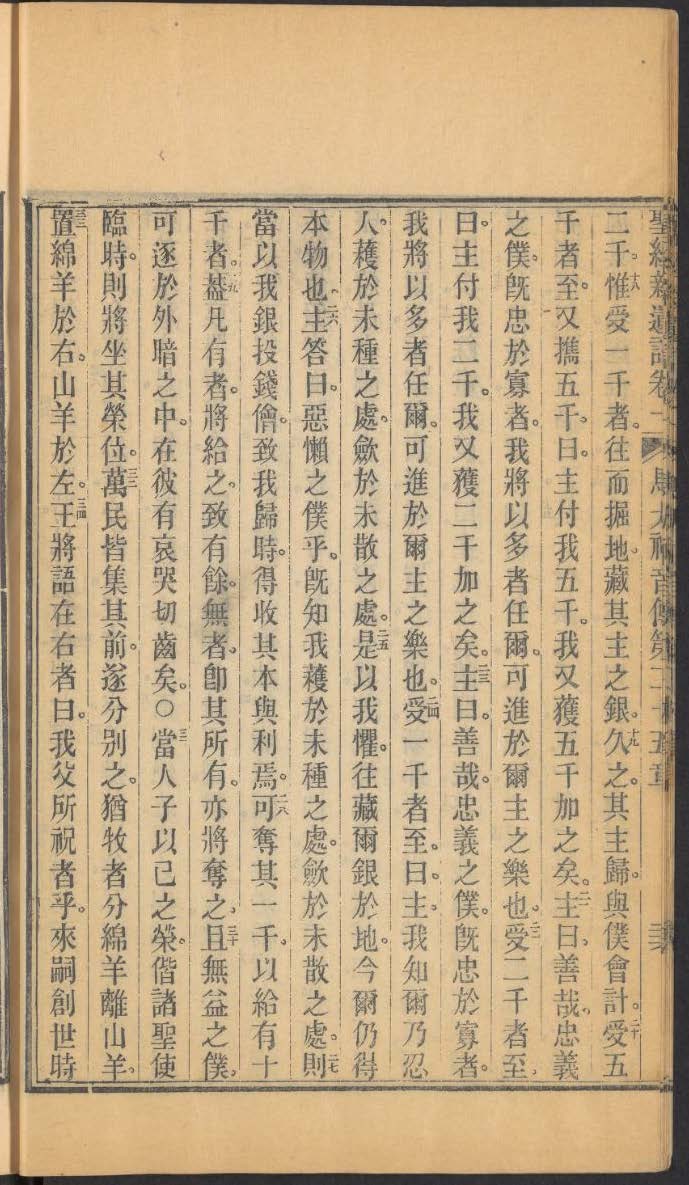 聖經新遺詔卷一 馬太福音傳第二十五章
二千。十八惟受一千者。往而掘地。藏其主之銀。十九久之。其主歸。與僕會計。二十受五
千者。至。又攜五千。曰。主付我五千。我又獲五千加之矣。二一主曰。善哉。忠義
之僕。旣忠於寡者。我將以多者任爾。可進於爾主之樂也。二二受二千者至。
曰。主付我二千。我又獲二千加之矣。二三主曰。善哉。忠義之僕。旣忠於寡者。
我將以多者任爾。可進於爾主之樂也。二四受一千者至。曰。主。我知爾乃忍
人。穫於未種之處。歛於未散之處。二五是以我懼。往藏爾銀於地。今爾仍得
本物也。二六主答曰。惡懶之僕乎。旣知我穫於未種之處。歛於未散之處。二七則
當以我銀投錢儈。致我歸時。得收其本與利焉。二八可奪其一千。以給有十
千者。二九葢凡有者。將給之。致有餘。無者。卽其所有。亦將奪之。三十且無益之僕。
可逐於外暗之中。在彼有哀哭切齒矣。〇三一當人子以己之榮。偕諸聖使
臨時。則將坐其榮位。三二萬民皆集其前。遂分別之。猶牧者分綿羊離山羊。
三三置綿羊於右。山羊於左。三四王將語在右者曰。我父所祝者乎。來嗣創世時